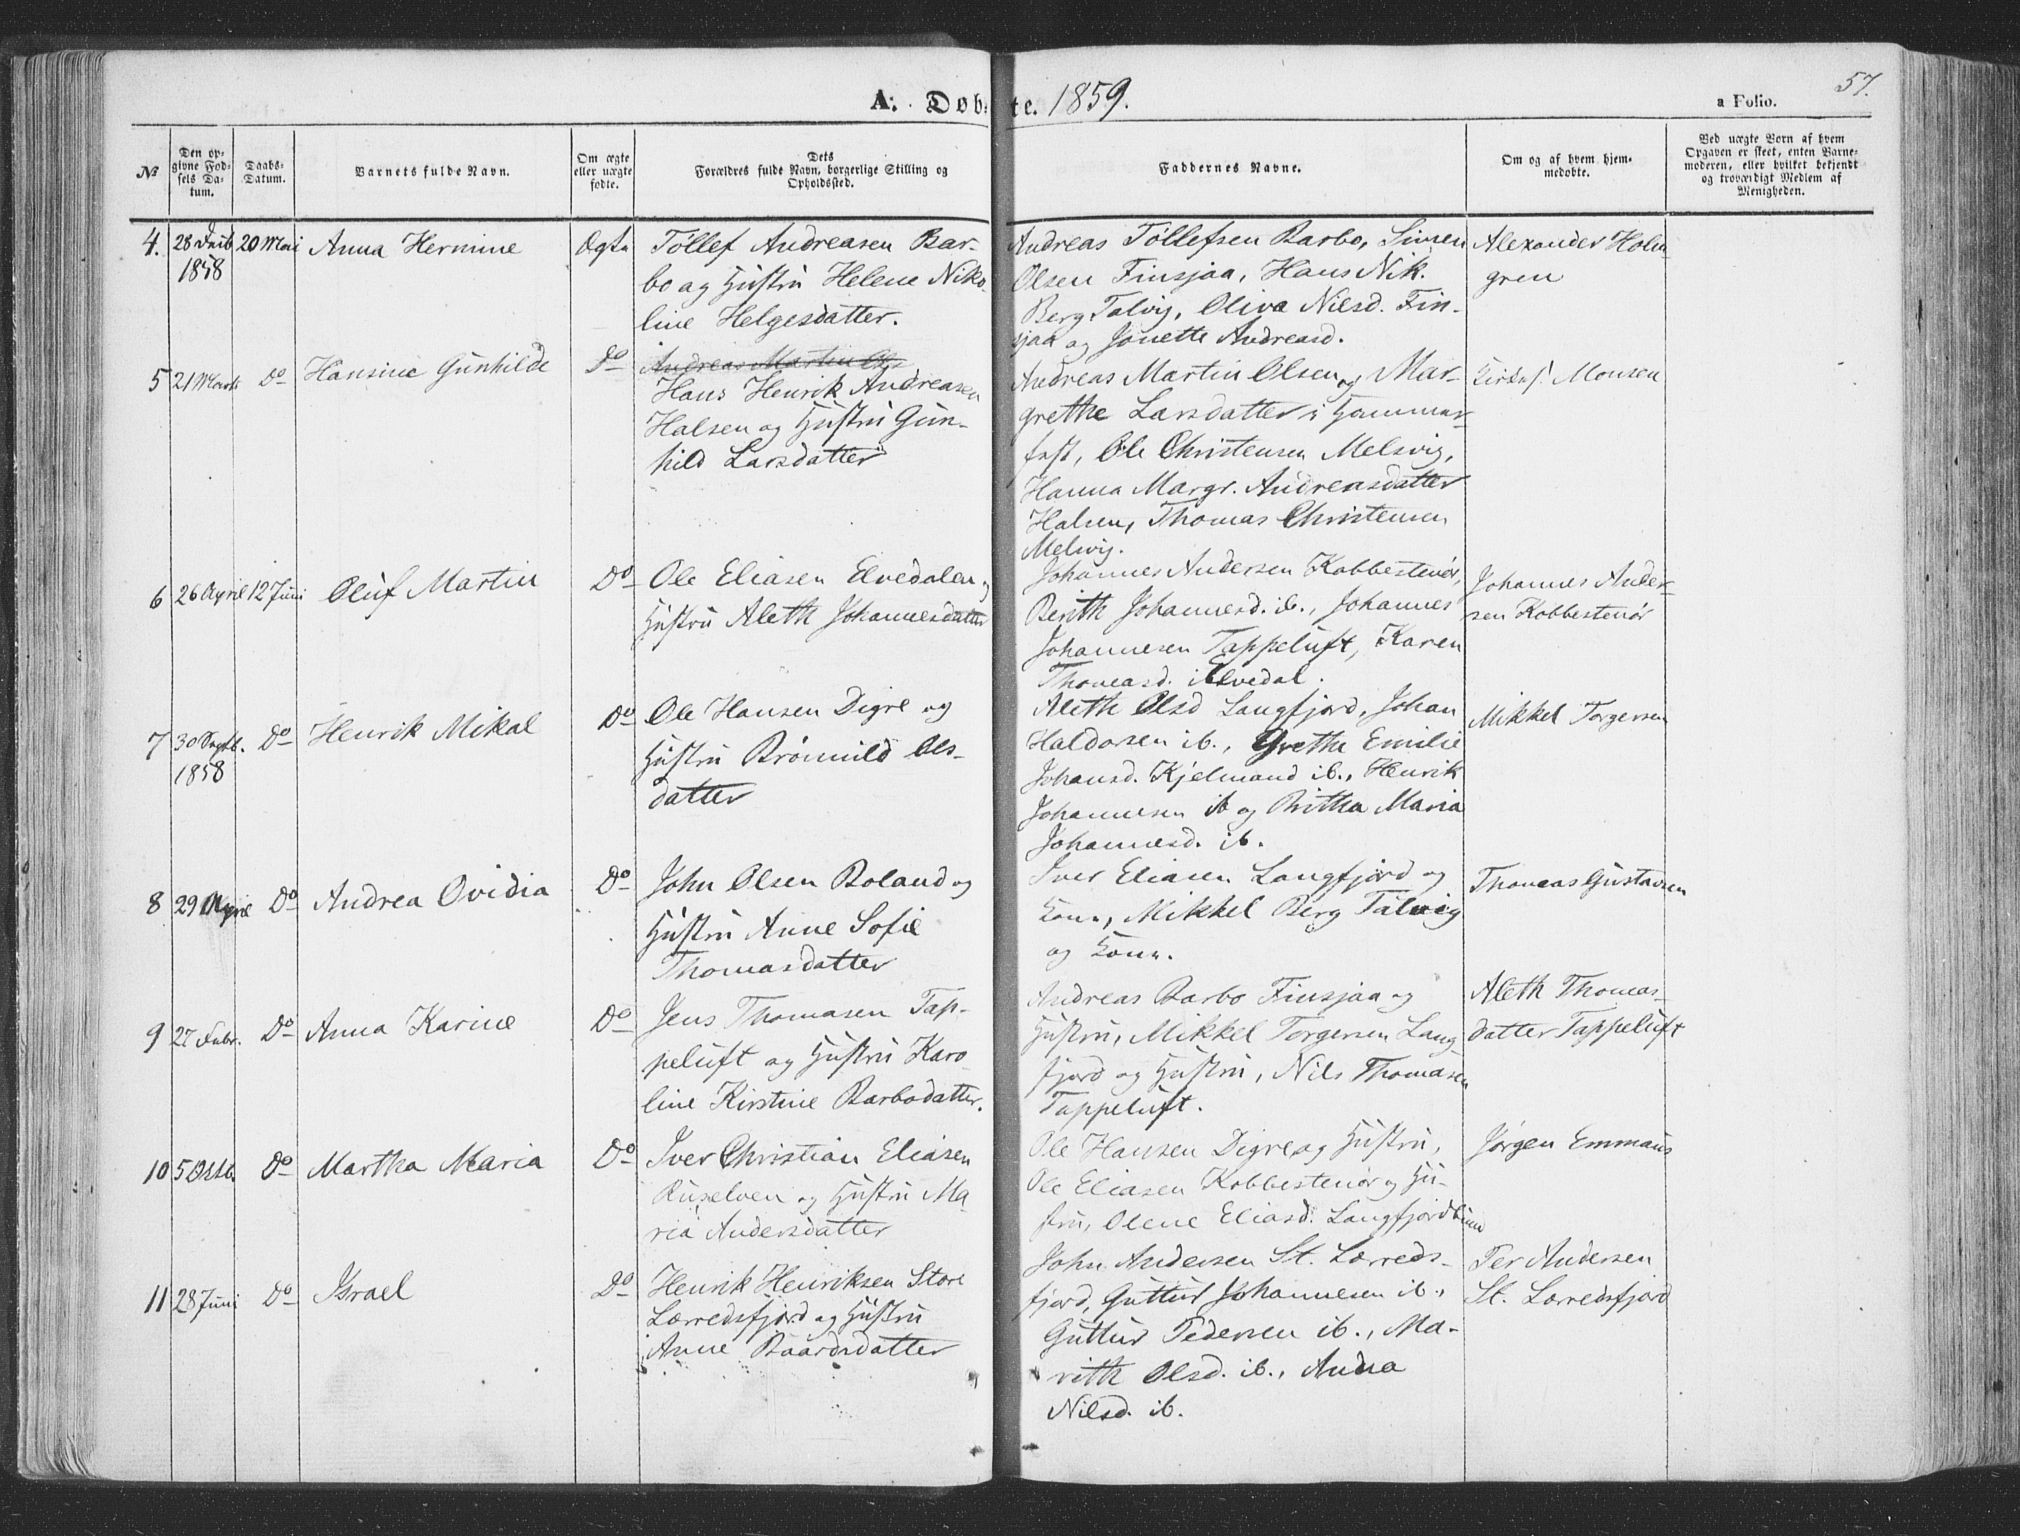 A. Døbte. 1859.
57.
a Folio.
No
Den opgivne Fødsels Datum.
Daabs-Datum.
Barnets fulde Navn.
Om ægte eller uægte fødte.
Dets Forældres fulde Navn, borgerlige Stilling og Opholdssted.
Faddernes Navne.
Om og af hvem hjemmedøbte.
Ved uægte Børn af hvem Opgaven er skeet, enten Barnemoderen, eller hvilket bekjendt og troværdigt Medlem af Menigheden.
4. 28 Feib 1858
20 Mai
Anna Hermine
Øgte
Töllef Andreasen Bar-
bo og Hustru Helene Niko-
line Helgesdatter.
Andreas Töllefsen Barbo, Simen
Olsen Finsjaa, Hans Nik.
Berg Talvig, Oliva Nilsd. Fin-
sjaa og Jonette Andreasd.
Alexander Holm
gren
5 21 Marts
Do
Hansine Gunhilde
Do
Andreas Martin Ols
Hans Henrik Andreasen
Halsen og Hustru Gun-
hild Larsdatter
Andreas Martin Olsen og Mar-
grethe Larsdatter i Hammer-
fest, Ole Christensen Melsvig,
Hanna Margr. Andreasdatter
Halsen, Thomas Christensen
Melsvig.
Monsen
6 26 April
12 Juni
Oluf Martin
Do
Ole Eliasen Elvedalen og
Hustru Aleth Johannesdatter
Johannes Andersen Kobbestenör,
Berith Johannesd. ib., Johannes
Johannesen Tappeluft, Karen
Thomasd. i Elvedal.
Johannes Ander-
sen Kobbestenör
7 30 Septb. 1858
Do
Henrik Mikal
Do
Ole Hansen Digre og
Hustru Brönnild Ols-
datter
Aleth Olsd Langfjord, Johan
Haldorsen ib., Grethe Emilie
Johansd. Kjelmand ib., Henrik
Johannesen ib og Britha Maria
Johannesd. ib.
Mikkel Torgersen
8 29 April
Do
Andrea Ovidia
Do
John Olsen Boland og
Hustru Anne Sofie
Thomasdatter
Iver Eliasen Langfjord og
Kone, Mikkel Berg Talvig
og Kone.
Thomas Gustavsen
9 27 Febr.
Do
Anna Karine
Do
Jens Thomasen Tap-
peluft og Hustru Karo
line Kirstine Barbodatter.
Andreas Barbo Finsjaa og
Hustru, Mikkel Torgersen Lang-
fjord og Hustru, Nils Thomasen
Tappeluft.
Aleth Thomas-
datter Tappeluft
10 5 Octb.
Do
Martha Maria
Do
Iver Christian Eliasen
Ruselven og Hustru Ma
ria Andersdatter
Ole Hansen Digre og Hustru,
Ole Eliasen Kobbestenör og Hu-
stru, Olene Eliasd. Langfjordbund
Jørgen Emmaus
11 28 Juni
Do
Israel
Do
Henrik Henriksen Store
Lærredsfjord og Hustru
Anne Baardsdatter
John Andersen St. Lærreds-
fjord, Guttur Johannesen ib.,
Guttur Pedersen ib., Ma-
rith Olsd. ib., Anna
Nilsd. ib.
Per Andersen
St. Lærredsfjord